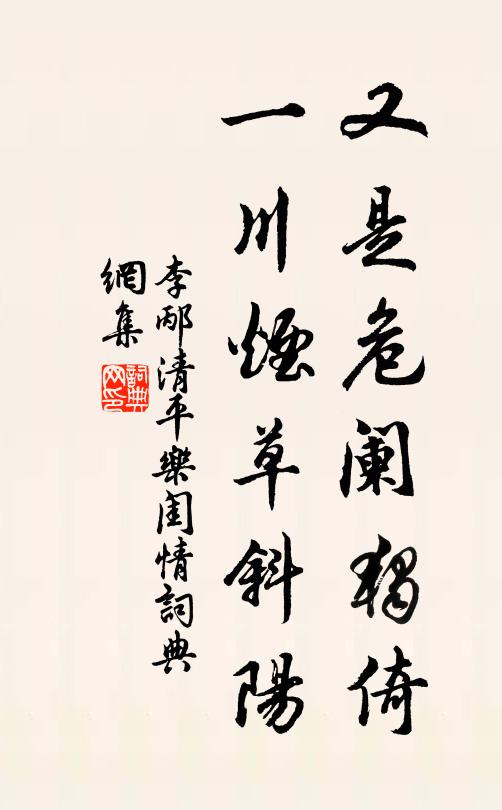 又是危阑獨倚
一川煙草斜陽
李邴清平樂閨情詞典
網集
詞典
网印